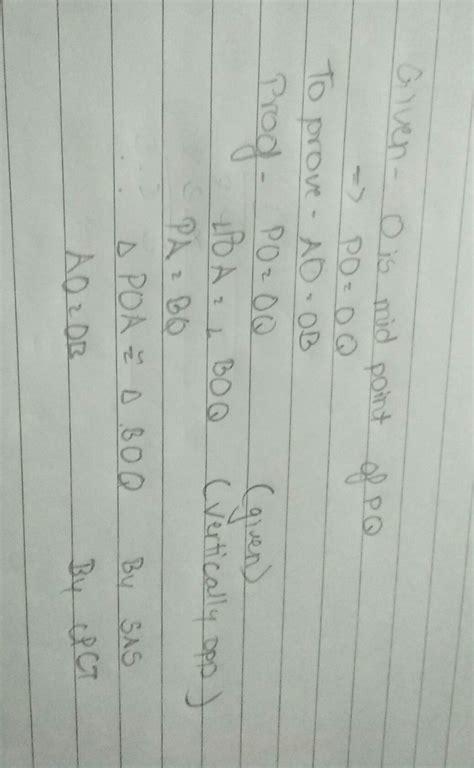 Given - O is mid point of PQ
=> PO = OQ
To prove - AO = OB
Proof - PO = OQ (given)
∠POA = ∠ BOQ (vertically opp)
PA = BQ
Δ POA ≅ Δ BOQ By SAS
AO = OB By CPCT